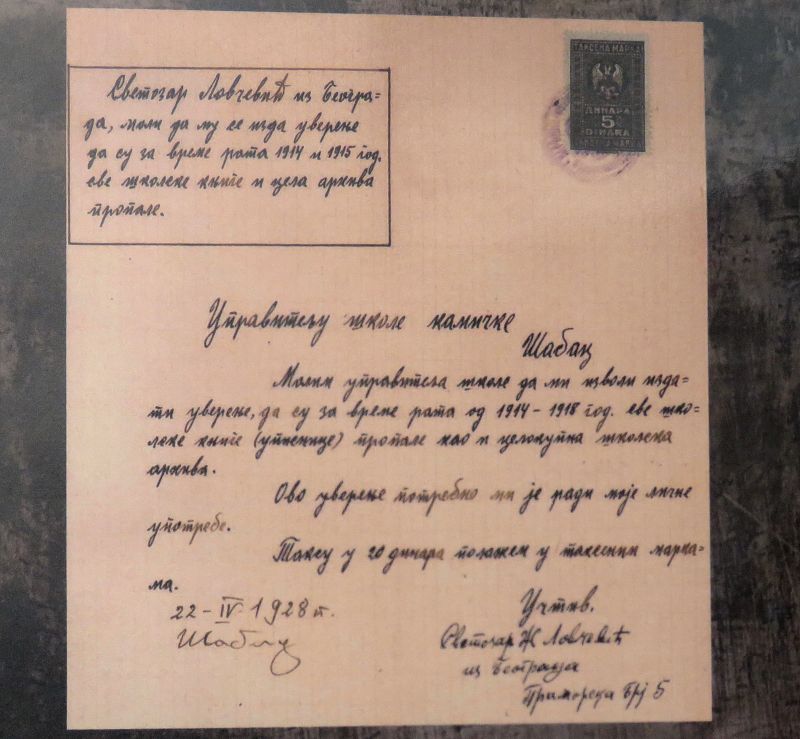 Светозар Ловчевић из Београ-
да, моли да му се изда уверење
да су за време рата 1914 и 1915 год.
све школске књиге и цела архива
пропале.
ТАКСЕНА МАРКА
ДИНАРА
5
DINARA
Управитељу школе
Шабац
Молим управитеља школе да ми изволи изда-
ти уверење, да су за време рата од 1914-1918 год. све шко-
лске књиге (уписнице) пропале као и целокупна школска
архива.
Ово уверење потребно ми је ради моје личне
употребе.
Таксу у 20 динара полажем у таксеним марка-
ма.
22-IV-1928 г.
Шабац
Учтив.
Светозар Ж Ловчевић
из Београда
Приморска број 5